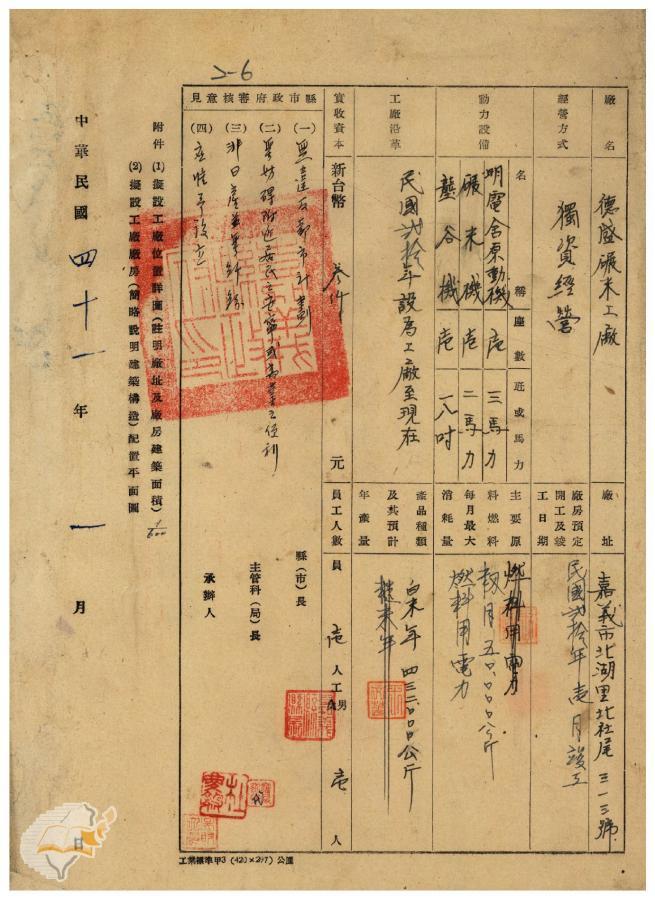 2-6
廠名
德盛碾米工廠
廠址
嘉義市北湖里北社尾三一三號
經營方式
獨資經營
廠房預定開工及竣工日期
民國貳拾年壹月竣工
動力設備
名稱
座數
瓩或馬力
明電舍原動機 壱 三馬力
碾米機 壱 二馬力
壟谷機 壱 一八吋
主要原料燃料每月最大消耗量
燃料用電力
穀月五〇.〇〇〇公斤
燃料用電力
工廠沿革
民國貳拾年設為工廠至現在
產品種類及其預計年產量
白米年 四三二.〇〇〇公斤
糙米年
實收資本
新台幣 參仟 元
員工人數
員 壱 人
工 男 壱 人
縣市政府審核意見
(一) 無違反都市計劃
(二) 無妨碍附近居民之安寧
(三)
(四) 應准予設立
縣(市)長
主管科(局)長
承辦人
附件 (1) 擬設工廠位置詳圖(註明廠址及廠房建築面積)
(2) 擬設工廠廠房(簡略說明建築構造)配置平面圖
1/600
中華民國四十一年一月 日
工業標準甲3 (420×297) 公厘